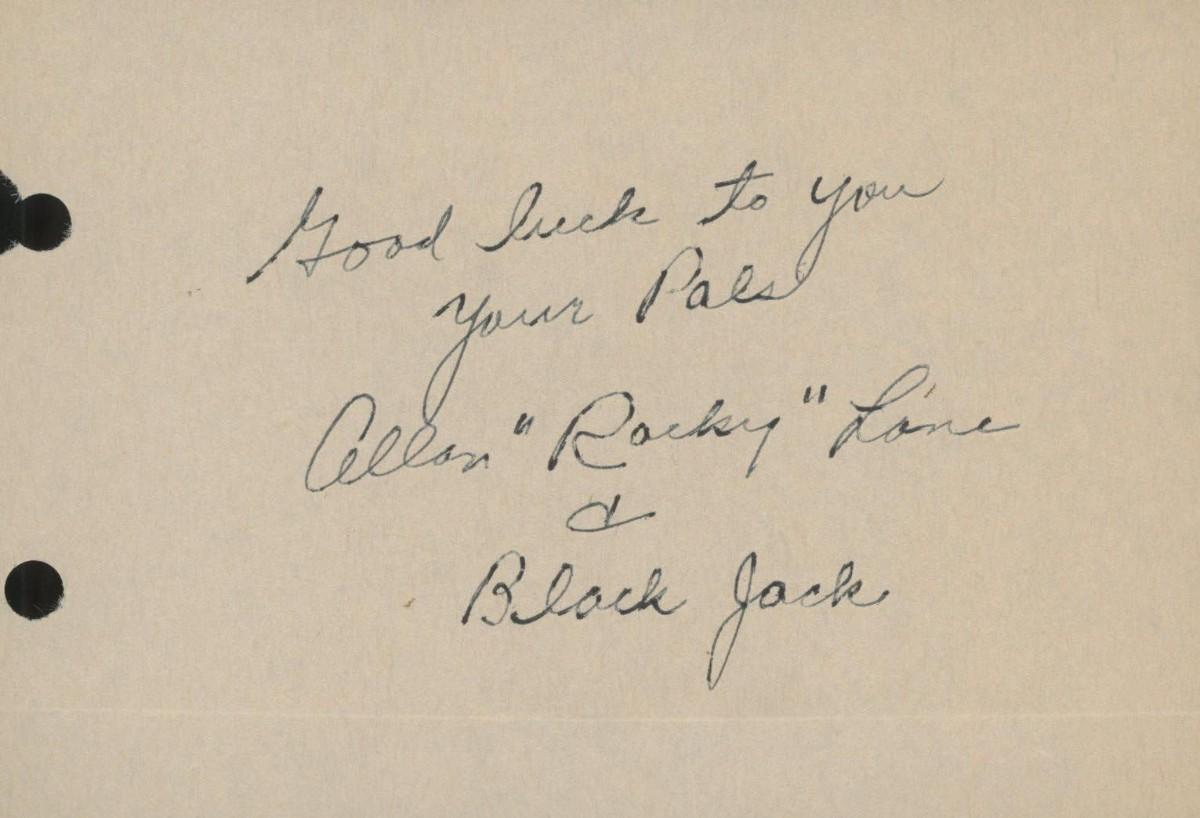 Good luck to you
Your Pals
Allan "Rocky" Lane
&
Black Jack